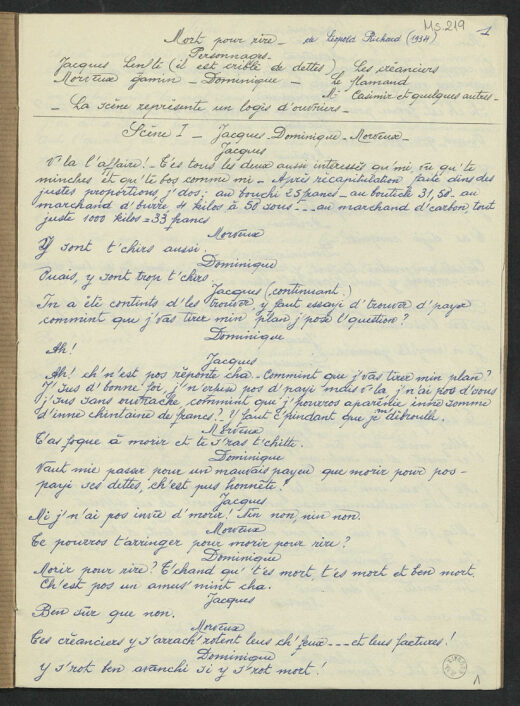 Ms. 219
1
Mort pour rire _ de Léopold Richard (1934)
Personnages_
Jacques (il est criblé de dettes) Les créanciers
Morveux gamin _ Dominique _ Le flamand
M. Casimir et quelques autres _
_ La scène représente un logis d'ouvriers _
Scène I _ Jacques _ Dominique _ Morveux _
Jacques
V'la l'affaire! T'es tous les deux aussi interessés qu'mi, vu qu'te
minches et qu'te bos comme mi _ Après récapitulation faite dins des
justes proportions j'dos; au bouché 25 francs _ au boutelle 31,50 _ au
marchand d'burre 4 kilos à 50 sous _ _ _ au marchand d'carbon, tout
juste 1000 kilos = 33 francs
Morveux
Y sont t'chirs aussi.
Dominique
Ouais, y sont trop t'chirs.
Jacques (continuant)
In a été contints d'les trouver, y faut essayi d'trouver d'payer
commint que j'vas tirer min plan j'pose l'question?
Dominique
Ah!
Jacques
Ah! ch'n'est pos réponte cha _ Commint que j'vas tirer min plan?
J'sus d'bonne foi, j'n'erfuse pos d'payi mais v'la, j'n'ai pos d'sous
j'sus sans ouvrache commint que j'pourros inne somme
d'inne chintaine de francs? I' faut l'pindant que je m'dibroulle.
Morveux
T'as foque à morir et te s'ras t'chitte.
Dominique
Vaut mie passer pour un mauvais payeu que morir pour pos _
payi ses dettes, ch'est pus honnête!
Jacques
Mi j'n'ai pos invie d'morir! Nin non, nin non.
Morveux
Te pourros t'arringer pour morir pour rire?
Dominique
Morir pour rire? T'chand qu' t'es mort, t'es mort et ben mort.
Ch'est pos un amus'mint cha.
Jacques
Ben sûr que non.
Morveux
Tes créanciers y s'arrach'rotent leus ch'feux _ _ _ et leus factures!
Dominique
Y s'rot ben avanchi si y s'rot mort!
1